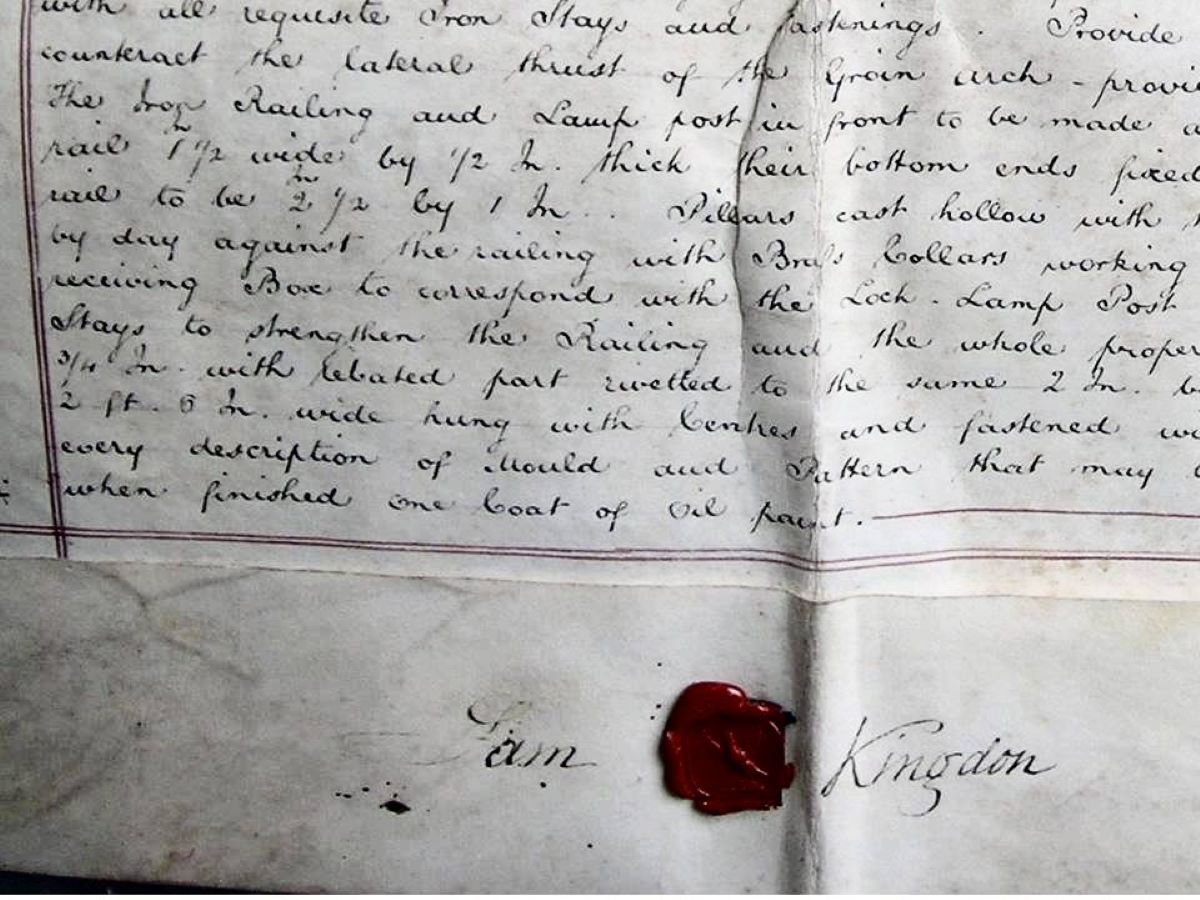 with all requisite Iron Stays and fastenings. Provide
counteract the lateral thrust of the Groin arch - provi
The Iron Railing and Lamp post in front to be made a
rail 1 1/2 In wide by 1/2 In. thick their bottom ends fixed
rail to be 2 1/2 In by 1 In.. Pillars cast hollow with
by day against the railing with Brass Collars working
receiving Box to correspond with the Lock. Lamp Post
Stays to strengthen the Railing and the whole proper
3/4 In. with rebated part rivetted to the same 2 In. b
2 ft. 6 In. wide hung with Centres and fastened wi
every description of Mould and Pattern that may
when finished one Coat of Oil paint.
Sam Kingdon